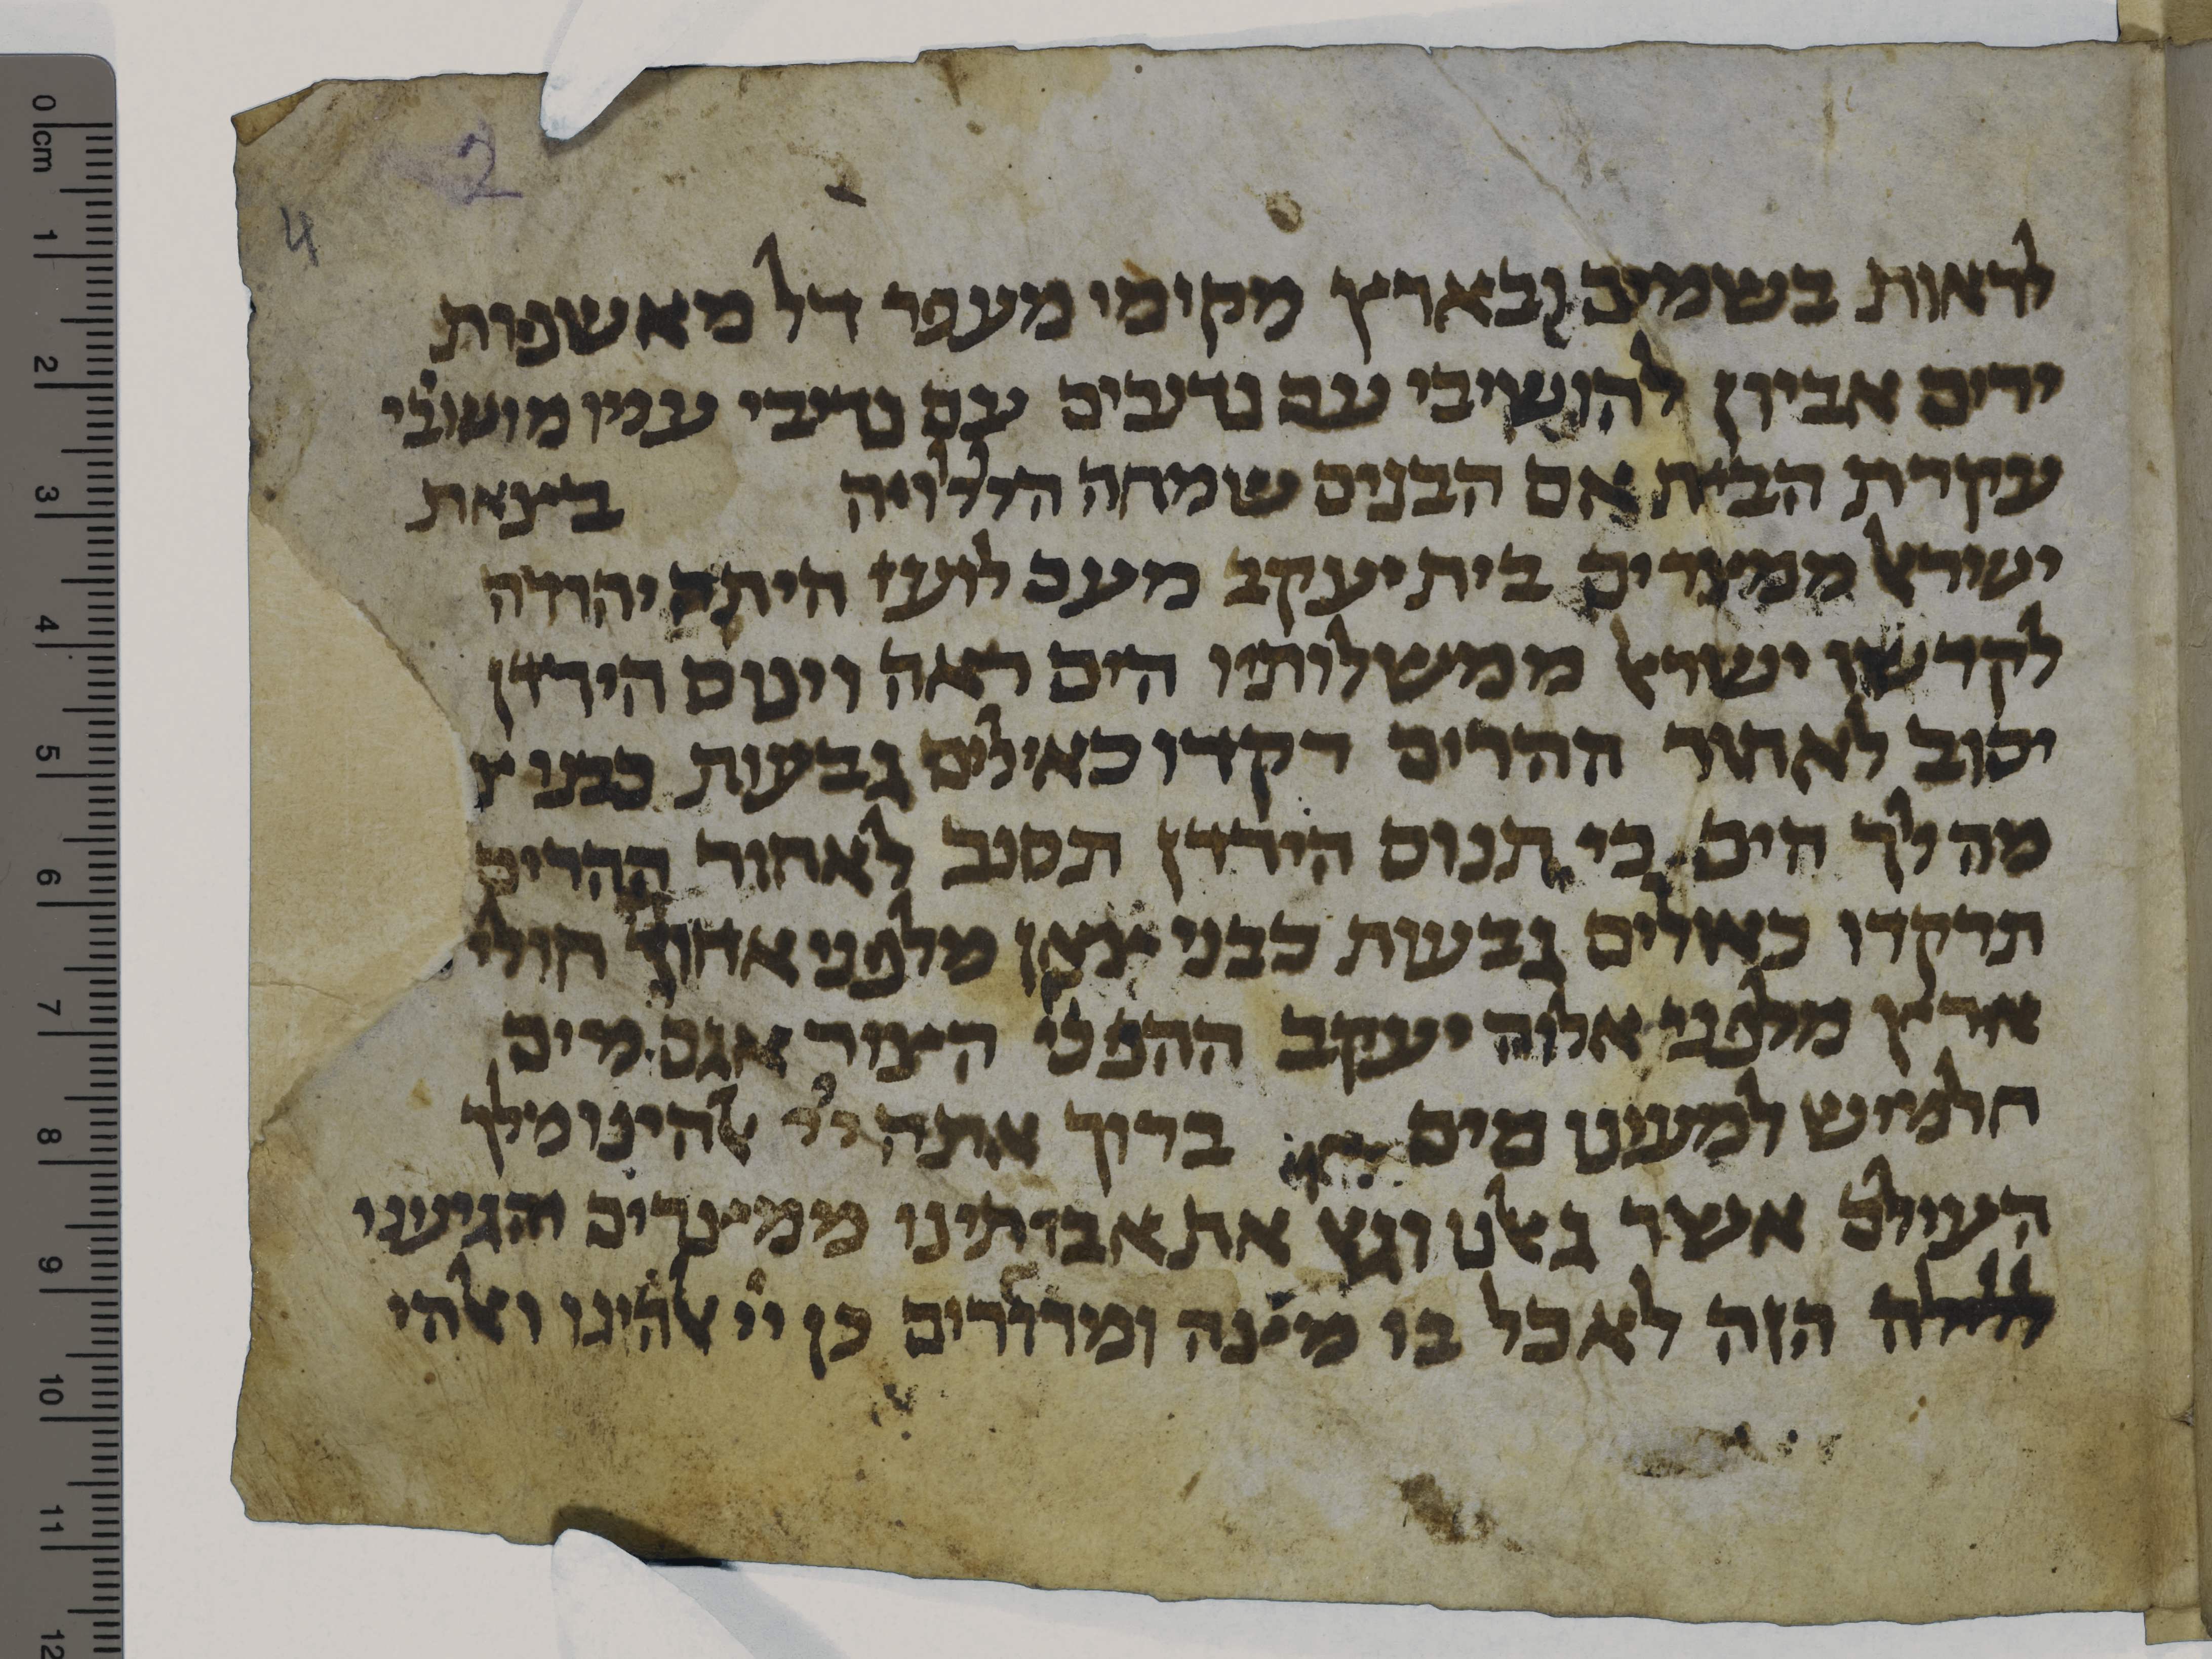 לראות בשמים ובארץ מקימי מעפר דל מאשפות
ירים אביון להושיבי עם נדיבים עם נדיבי עמו מושיבי
עקרת הבית אם הבנים שמחה הללויה בצאת
ישיראל ממצרים בית יעקב מעם לועז היתה יהודה
לקדשו ישראל ממשלותיו הים ראה וינוס הירדן
יסוב לאחור ההרים רקדו כאילים גבעות כבני
מה לך הים כי תנוס הירדן תסוב לאחור ההרים
תרקדו כאילים גבעות כבני צאן מלפני אדון חולי
ארץ מלפני אלוה יעקב ההפכי הצור אגם מים
חלמיש למעינו מים ברוך אתה ייי אלהינו מלך
העולם אשר גאלנו וגאל את אבותינו ממצרים והגיענו
הלילה הזה לאכל בו מצה ומרורים כן ייי אלהינו ואלהי
2
4
0 cm
1
2
3
4
5
6
7
8
9
10
11
12